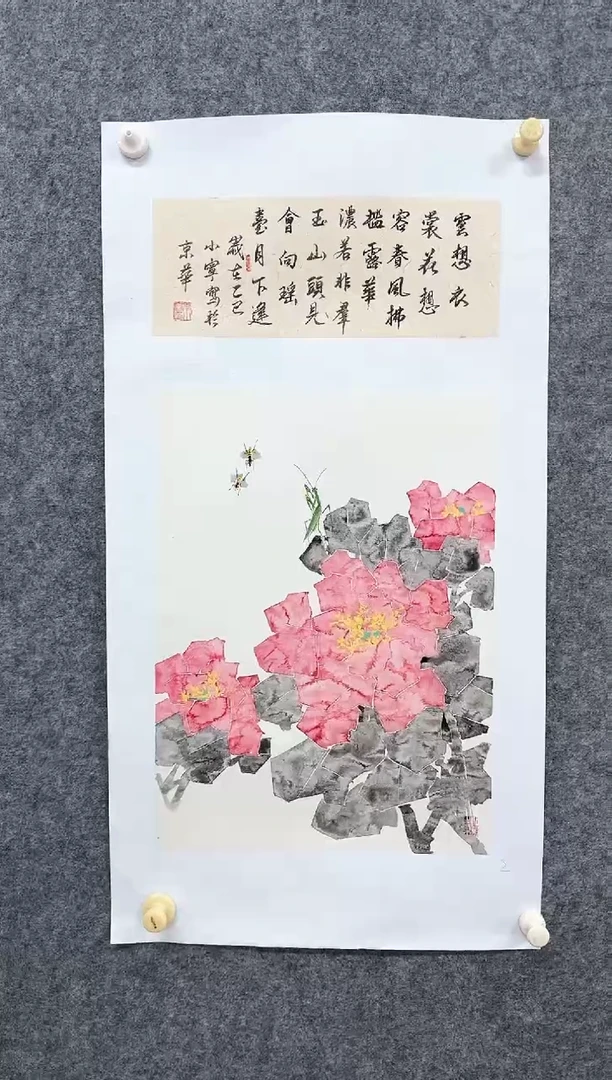 雲想衣
裳花想
容春風拂
檻露華
濃若非羣
玉山頭見
會向瑶
臺月下逢
歲在乙巳
小寧寫於
京華